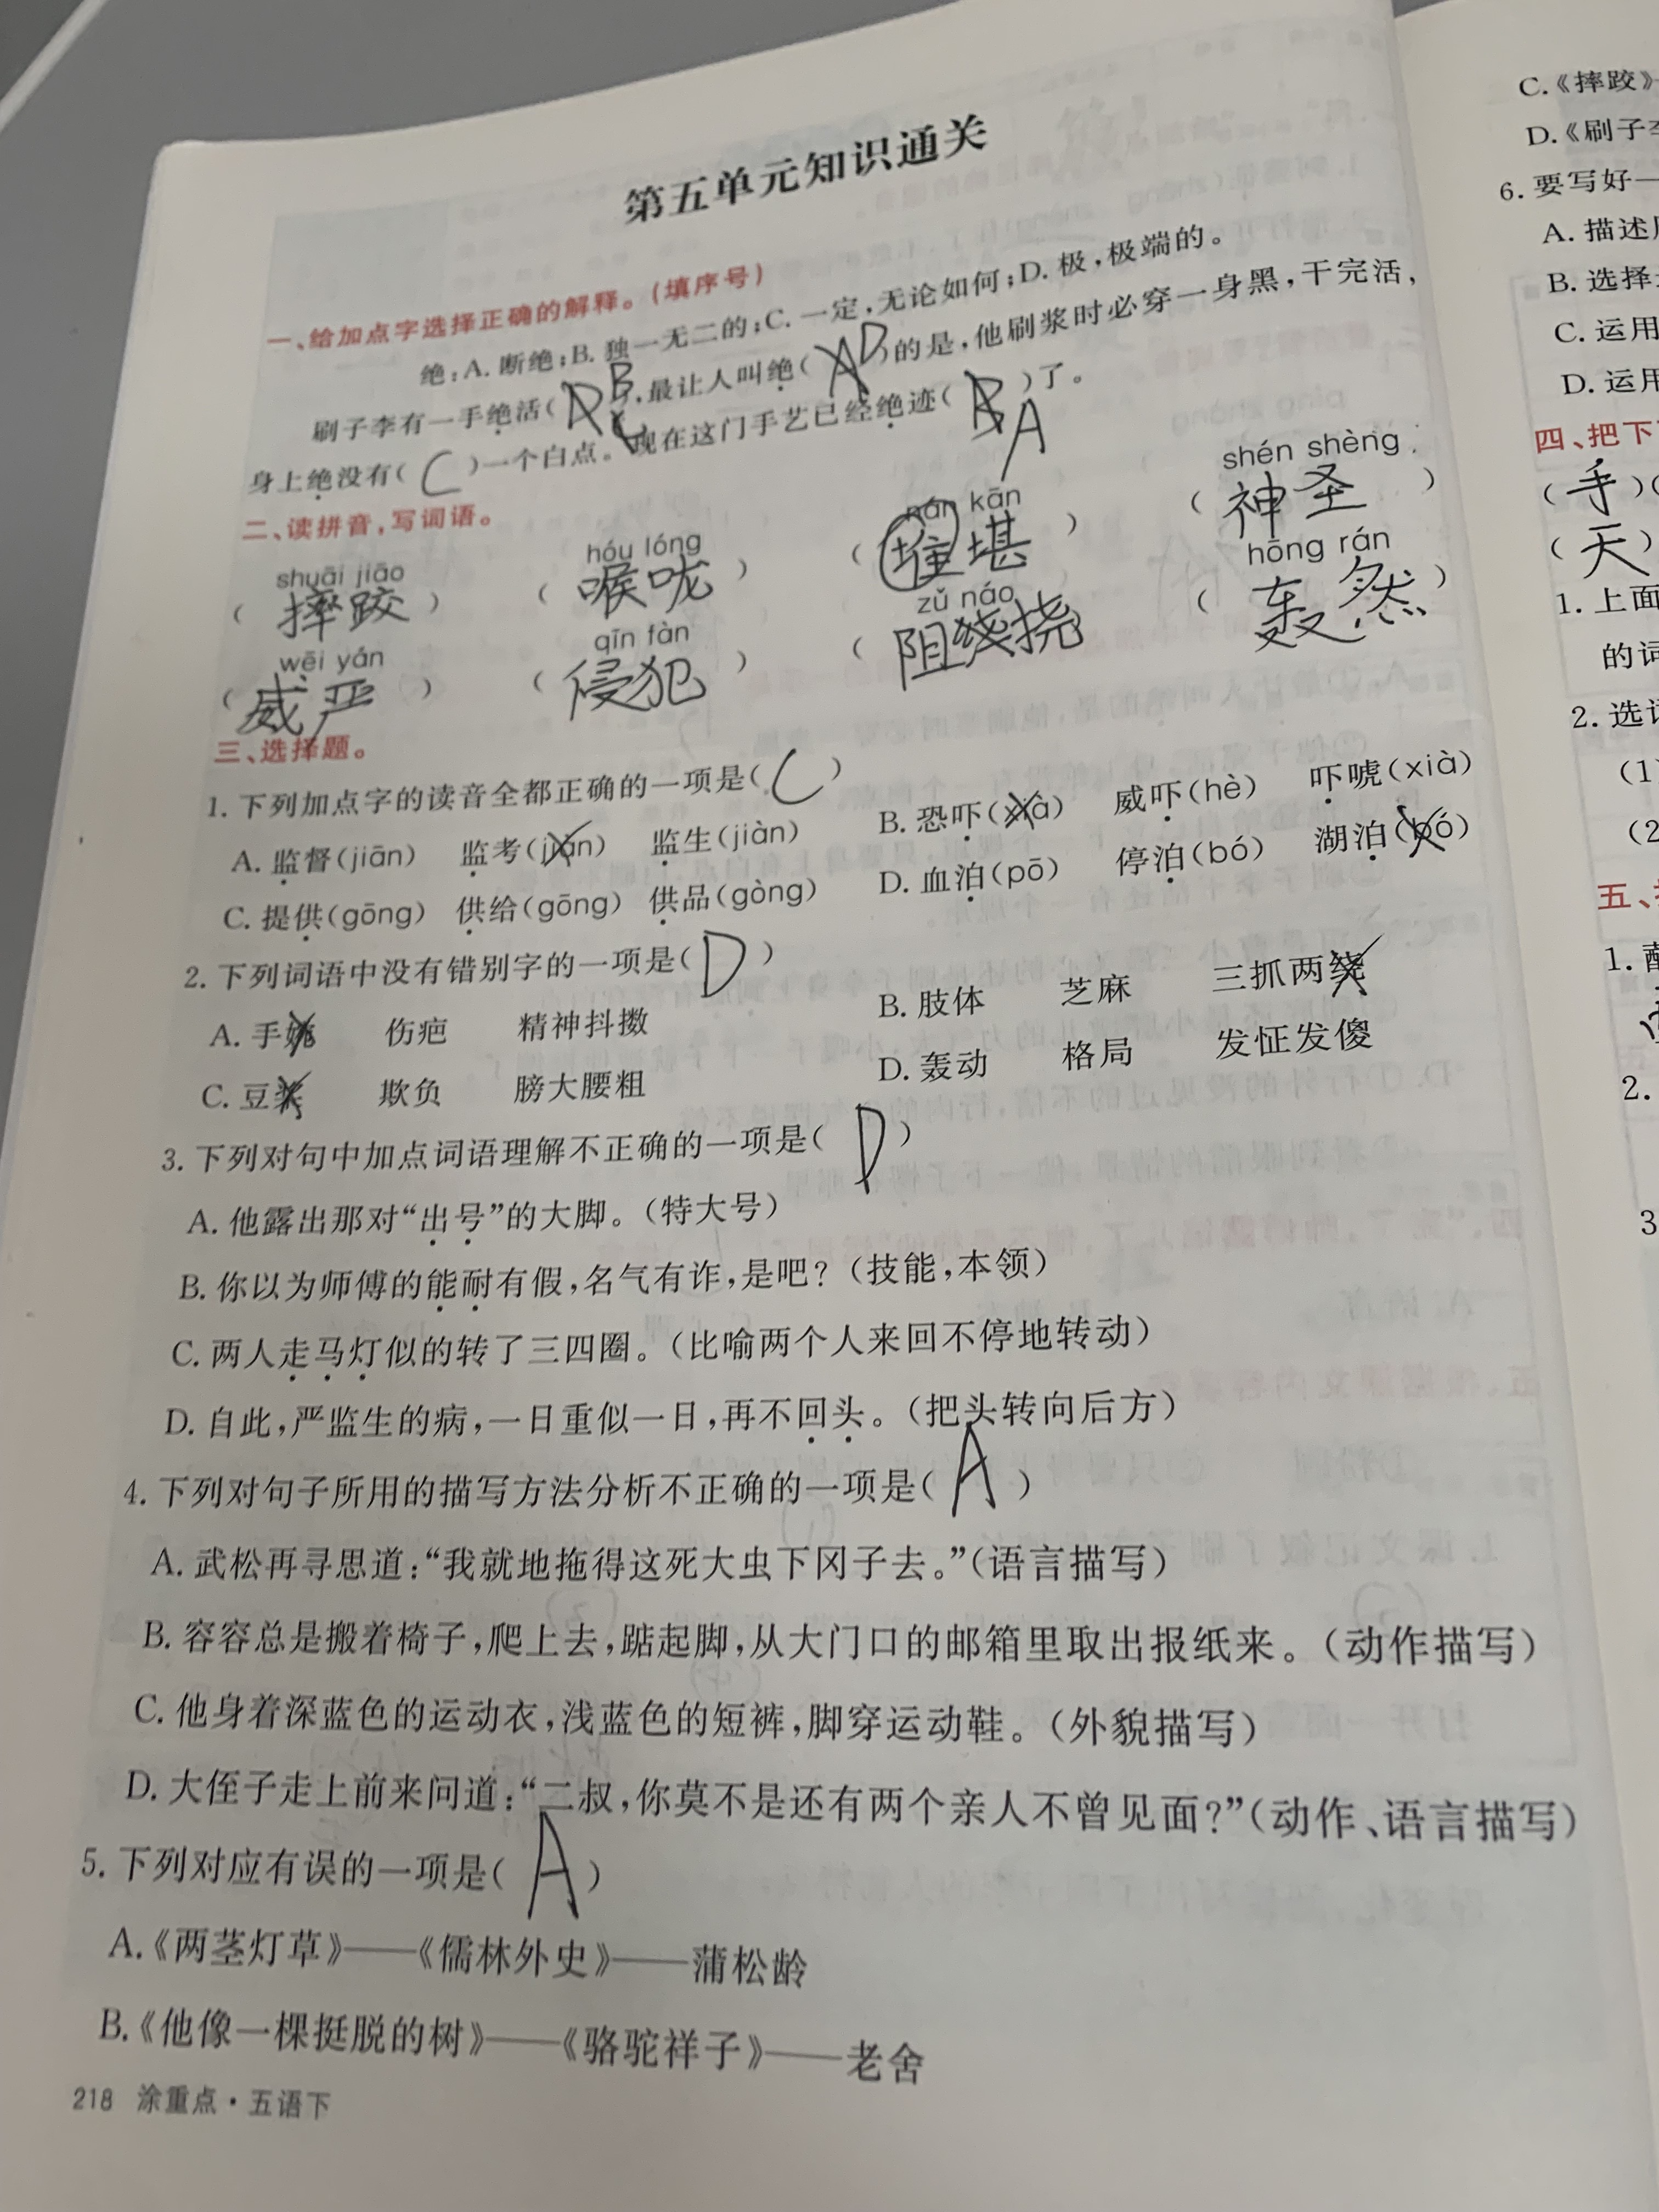 第五单元知识通关
一、给加点字选择正确的解释。(填序号)
绝:A. 断绝;B. 独一无二的;C. 一定,无论如何;D. 极,极端的。
刷子李有一手绝活( B ),最让人叫绝( D )的是,他刷浆时必穿一身黑,干完活,
身上绝没有( C )一个白点。现在这门手艺已经绝迹( A )了。
二、读拼音,写词语。
shuāi jiāo hóu lóng nán kān shén shèng
( 摔跤 ) ( 喉咙 ) ( 堪 ) ( 神圣 )
wēi yán qīn fàn zǔ náo hōng rán
( 威严 ) ( 侵犯 ) ( 阻挠 ) ( 轰然 )
三、选择题。
1. 下列加点字的读音全都正确的一项是( C )
A. 监督(jiān) 监考(jiàn) 监生(jiàn) B. 恐吓(xià) 威吓(hè) 吓唬(xià)
C. 提供(gōng) 供给(gōng) 供品(gòng) D. 血泊(pō) 停泊(bó) 湖泊(bó)
2. 下列词语中没有错别字的一项是( D )
A. 手 伤疤 精神抖擞 B. 肢体 芝麻 三抓两绕
C. 豆 欺负 膀大腰粗 D. 轰动 格局 发怔发傻
3. 下列对句中加点词语理解不正确的一项是( D )
A. 他露出那对“出号”的大脚。(特大号)
B. 你以为师傅的能耐有假,名气有诈,是吧?(技能,本领)
C. 两人走马灯似的转了三四圈。(比喻两个人来回不停地转动)
D. 自此,严监生的病,一日重似一日,再不回头。(把头转向后方)
4. 下列对句子所用的描写方法分析不正确的一项是( A )
A. 武松再寻思道:“我就地拖得这死大虫下冈子去。”(语言描写)
B. 容容总是搬着椅子,爬上去,踮起脚,从大门口的邮箱里取出报纸来。(动作描写)
C. 他身着深蓝色的运动衣,浅蓝色的短裤,脚穿运动鞋。(外貌描写)
D. 大侄子走上前来问道:“二叔,你莫不是还有两个亲人不曾见面?”(动作、语言描写)
5. 下列对应有误的一项是( A )
A.《两茎灯草》——《儒林外史》——蒲松龄
B.《他像一棵挺脱的树》——《骆驼祥子》——老舍
218 涂重点·五语下
C.《摔跤》
D.《刷子
6. 要写好一
A. 描述
B. 选择
C. 运用
D. 运用
四、把下
( 手 )(
( 天 )
1. 上面
的词
2. 选
(1
(2
五、
1.
2.
3